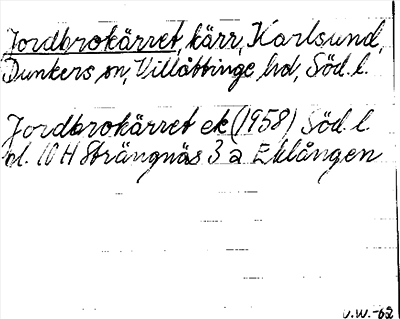 Jordbrokärret, kärr, Karlsund,
Dunkers sn, Villåttinge hd, Söd. l.
Jordbrokärret ek (1958) Söd. l
bl. 10 H Strängnäs 3 a Eklången
V.W.-62